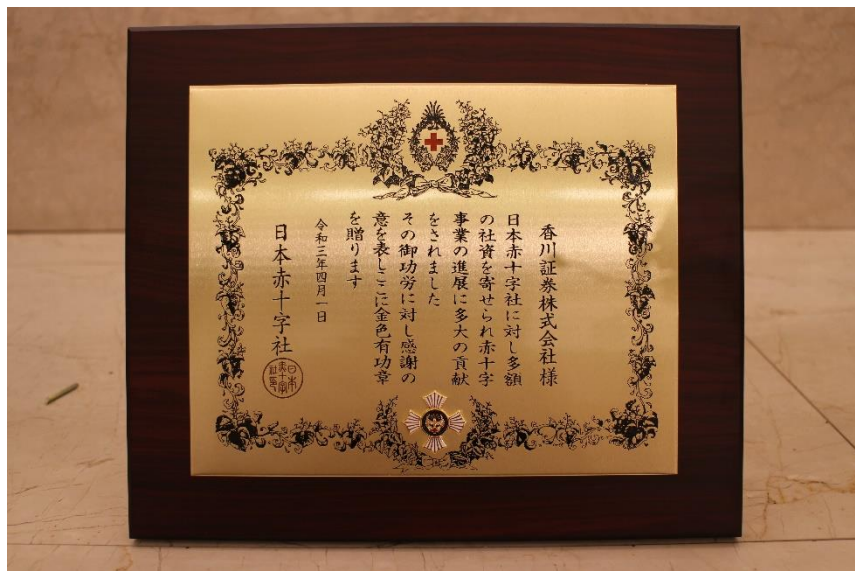 香川証券株式会社様
日本赤十字社に対し多額
の社資を寄せられ赤十字
事業の進展に多大の貢献
をされました
その御功労に対し感謝の
意を表しここに金色有功章
を贈ります
令和三年四月一日
日本赤十字社